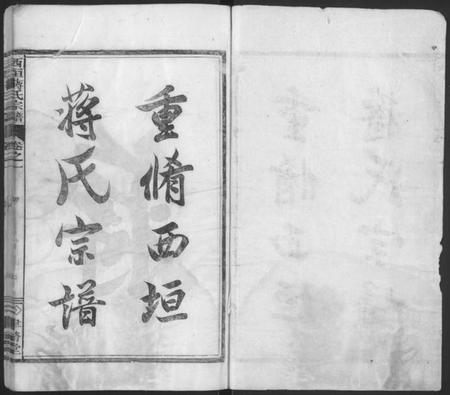 重脩西垣
蔣氏宗譜
西垣蔣氏宗譜
卷之一